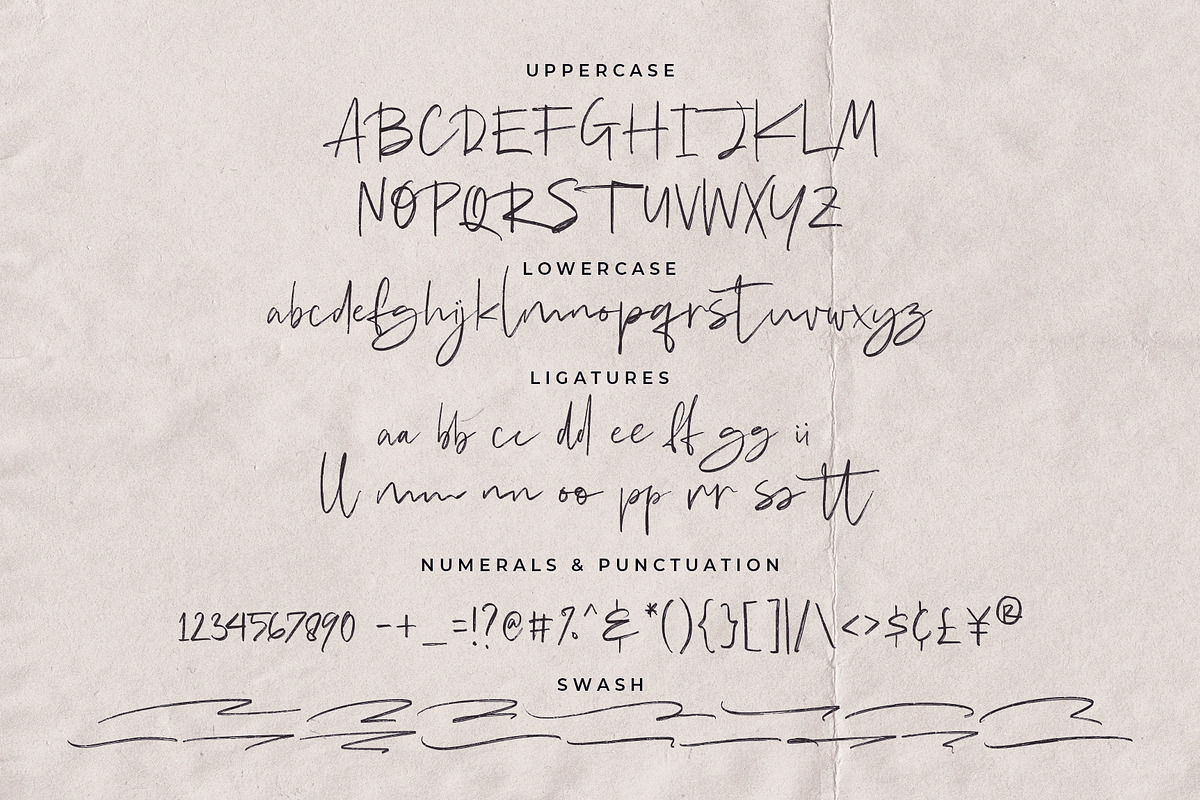 UPPERCASE
ABCDEFGHIJKLM
NOPQRSTUVWXYZ
LOWERCASE
abcdefghijklmnopqrstuvwxyz
LIGATURES
aa bb cc dd ee ff gg ii
ll mm nn oo pp rr ss tt
NUMERALS & PUNCTUATION
1234567890 -+_=!?@#%^&*(){}[]|/\<>$¢£¥®
SWASH